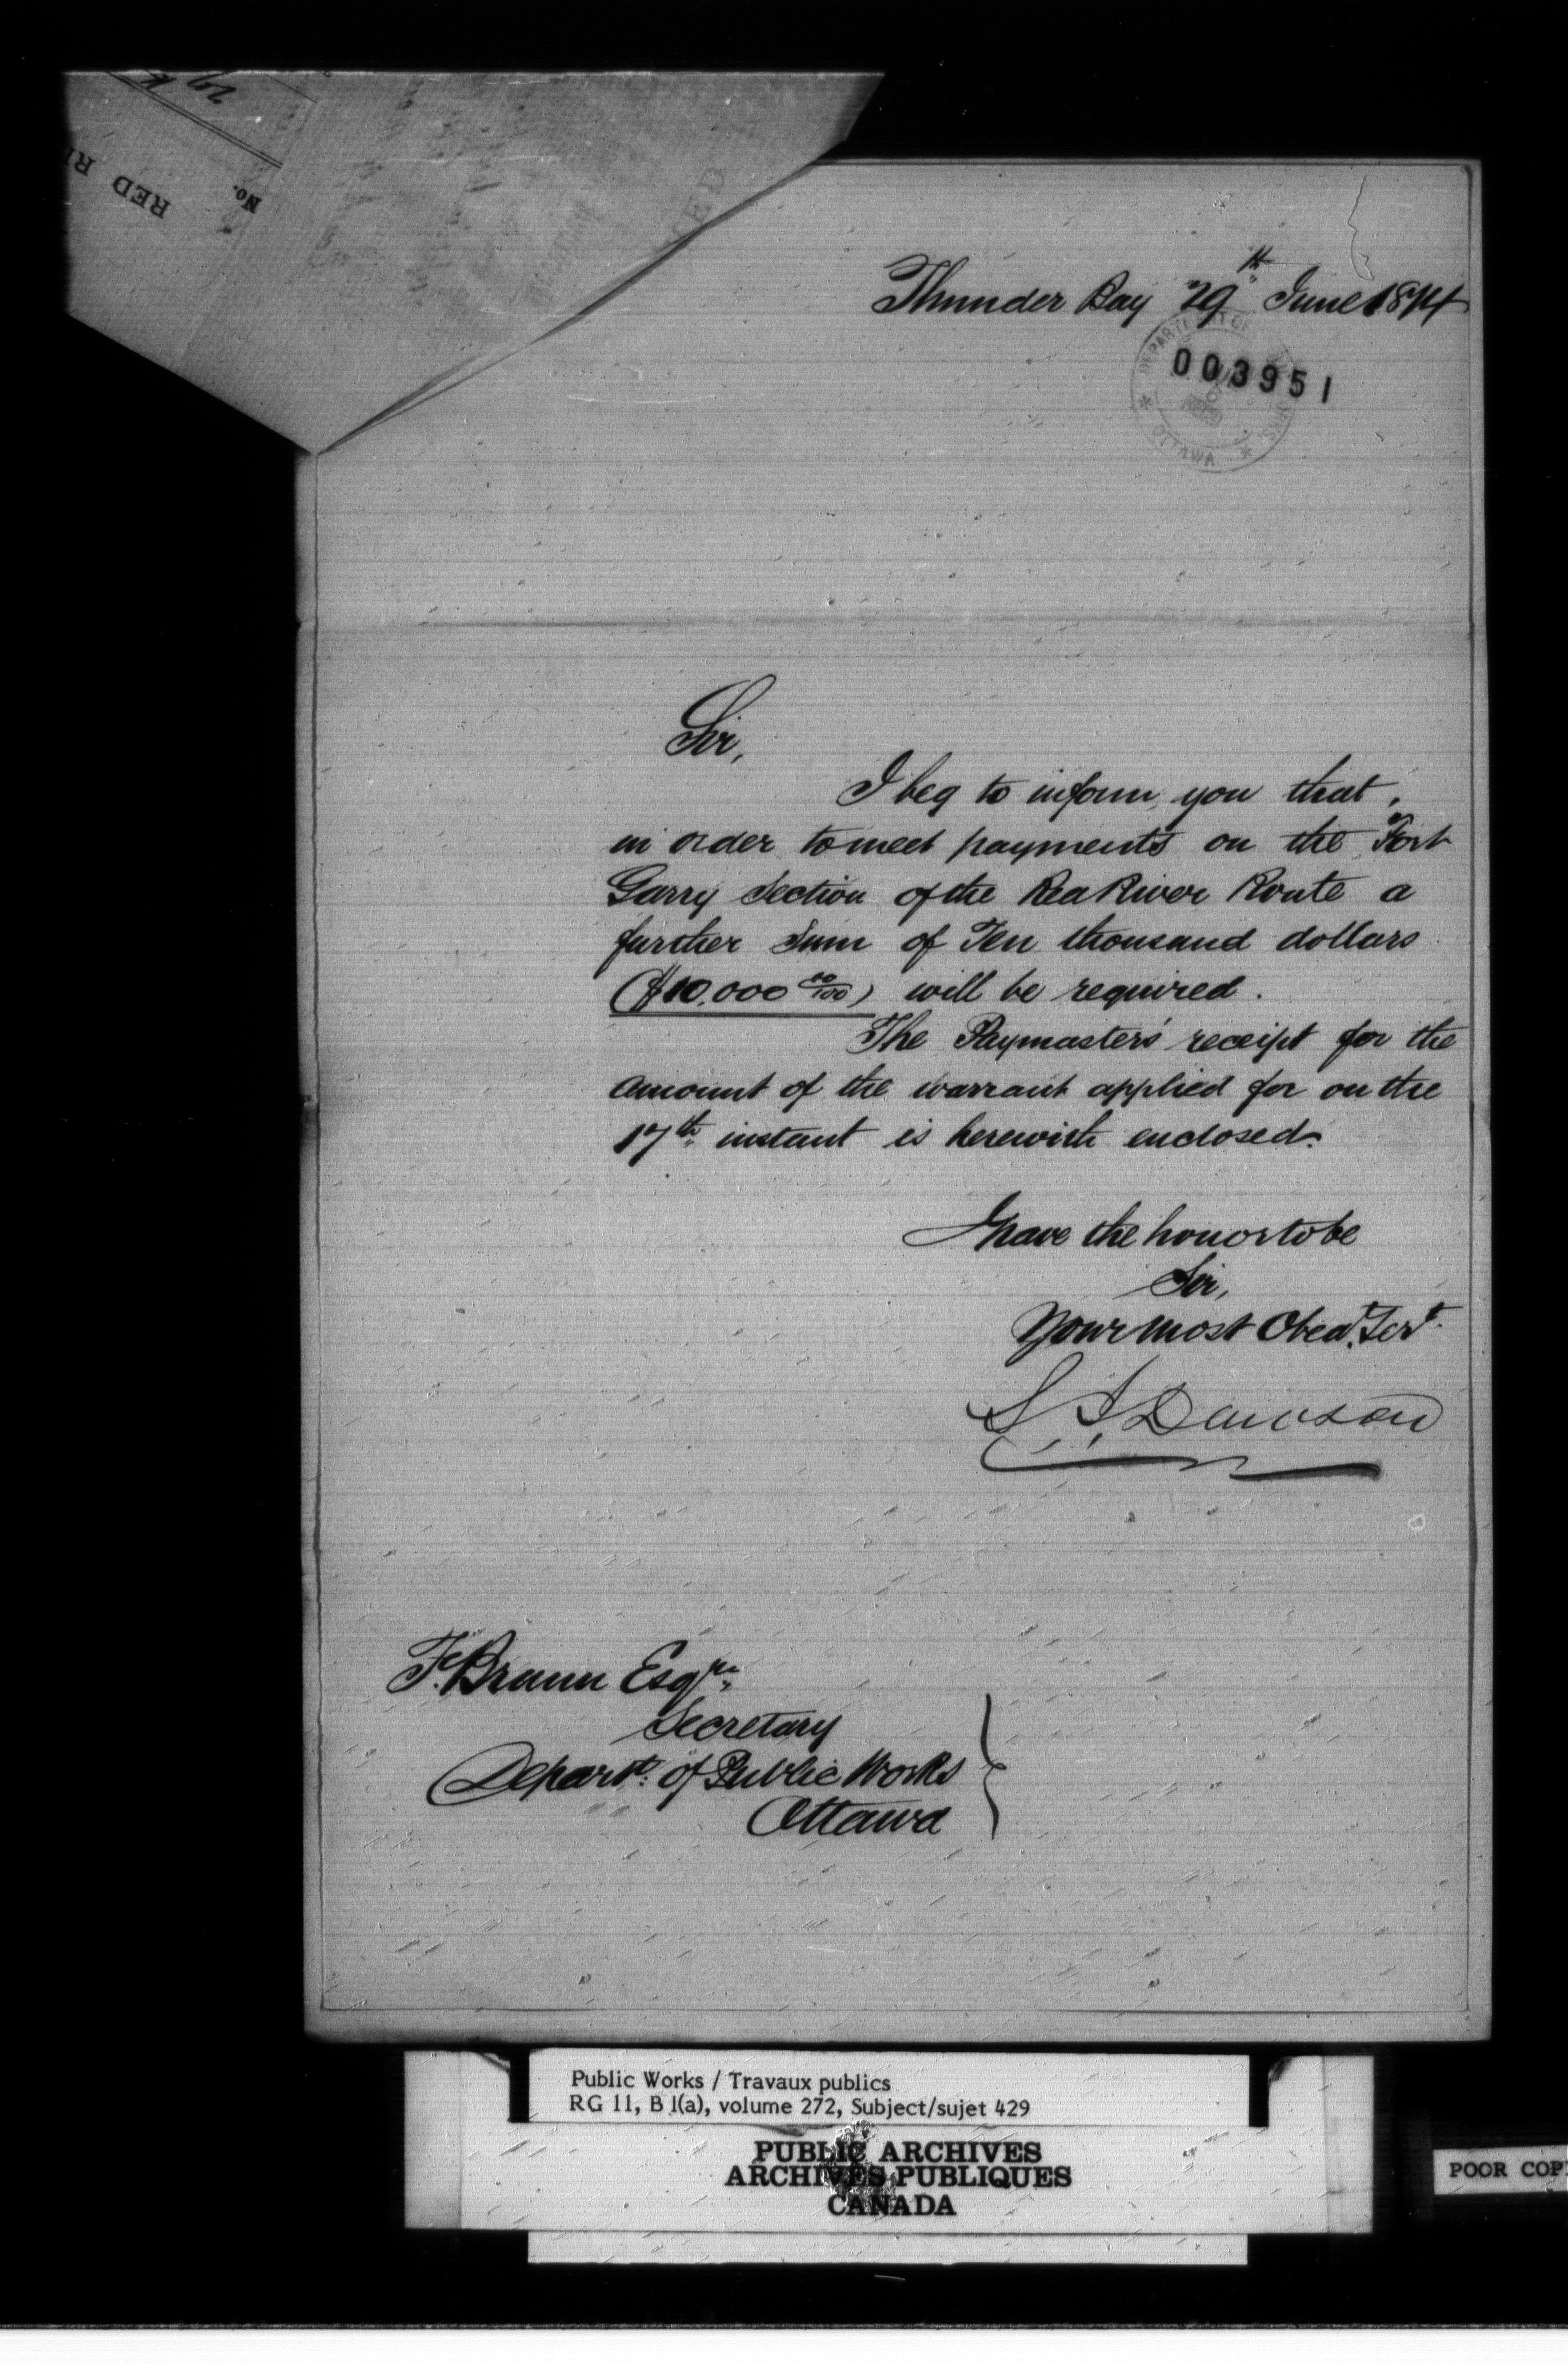 No.
RED RI
Thunder Bay 29th June 1874
003951
OTTAWA
Sir,
I beg to inform you that,
in order to meet payments on the Fort
Garry Section of the Red River Route a
further Sum of Ten thousand dollars
($10.000 00/100) will be required.
The Paymaster's receipt for the
amount of the warrant applied for on the
17th instant is herewith enclosed.
I have the honor to be
Sir,
Your most Obed.t Serv.t
S J Dawson
F. Braun Esqre.
Secretary
Depart. of Public Works
Ottawa
Public Works / Travaux publics
RG 11, B 1(a), volume 272, Subject/sujet 429
PUBLIC ARCHIVES
ARCHIVES PUBLIQUES
CANADA
POOR COP